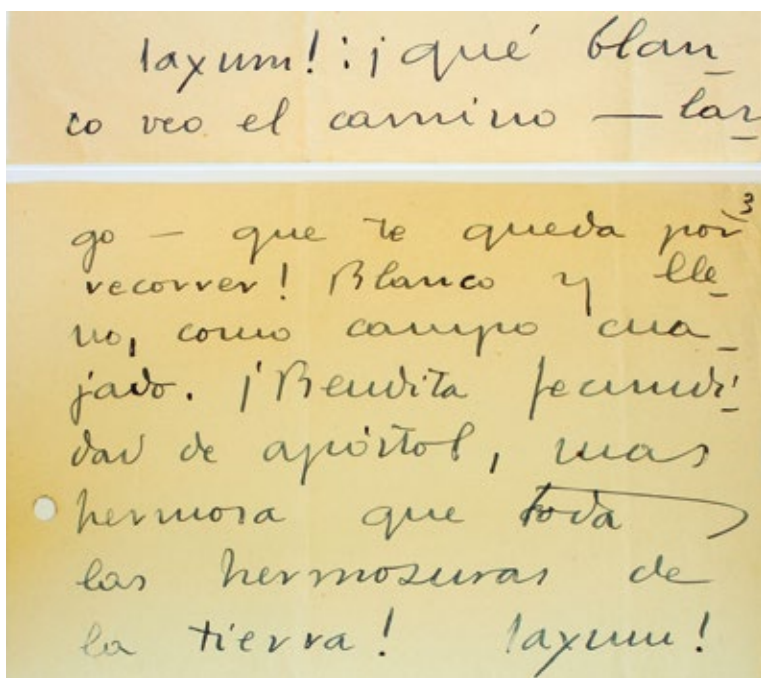 Saxum! : ¡qué blan_
co veo el camino — lar_
3
go — que te queda por
recorrer! Blanco y lle_
no, como campo cua_
jado. ¡Bendita fecundi_
dad de apóstol, mas
hermosa que toda
las hermosuras de
la tierra! Saxum!